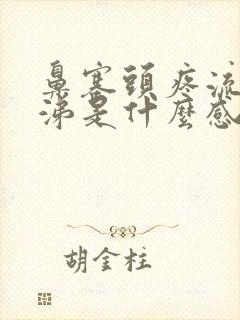 鼻塞頭疼流
涕是什麼感
胡金柱